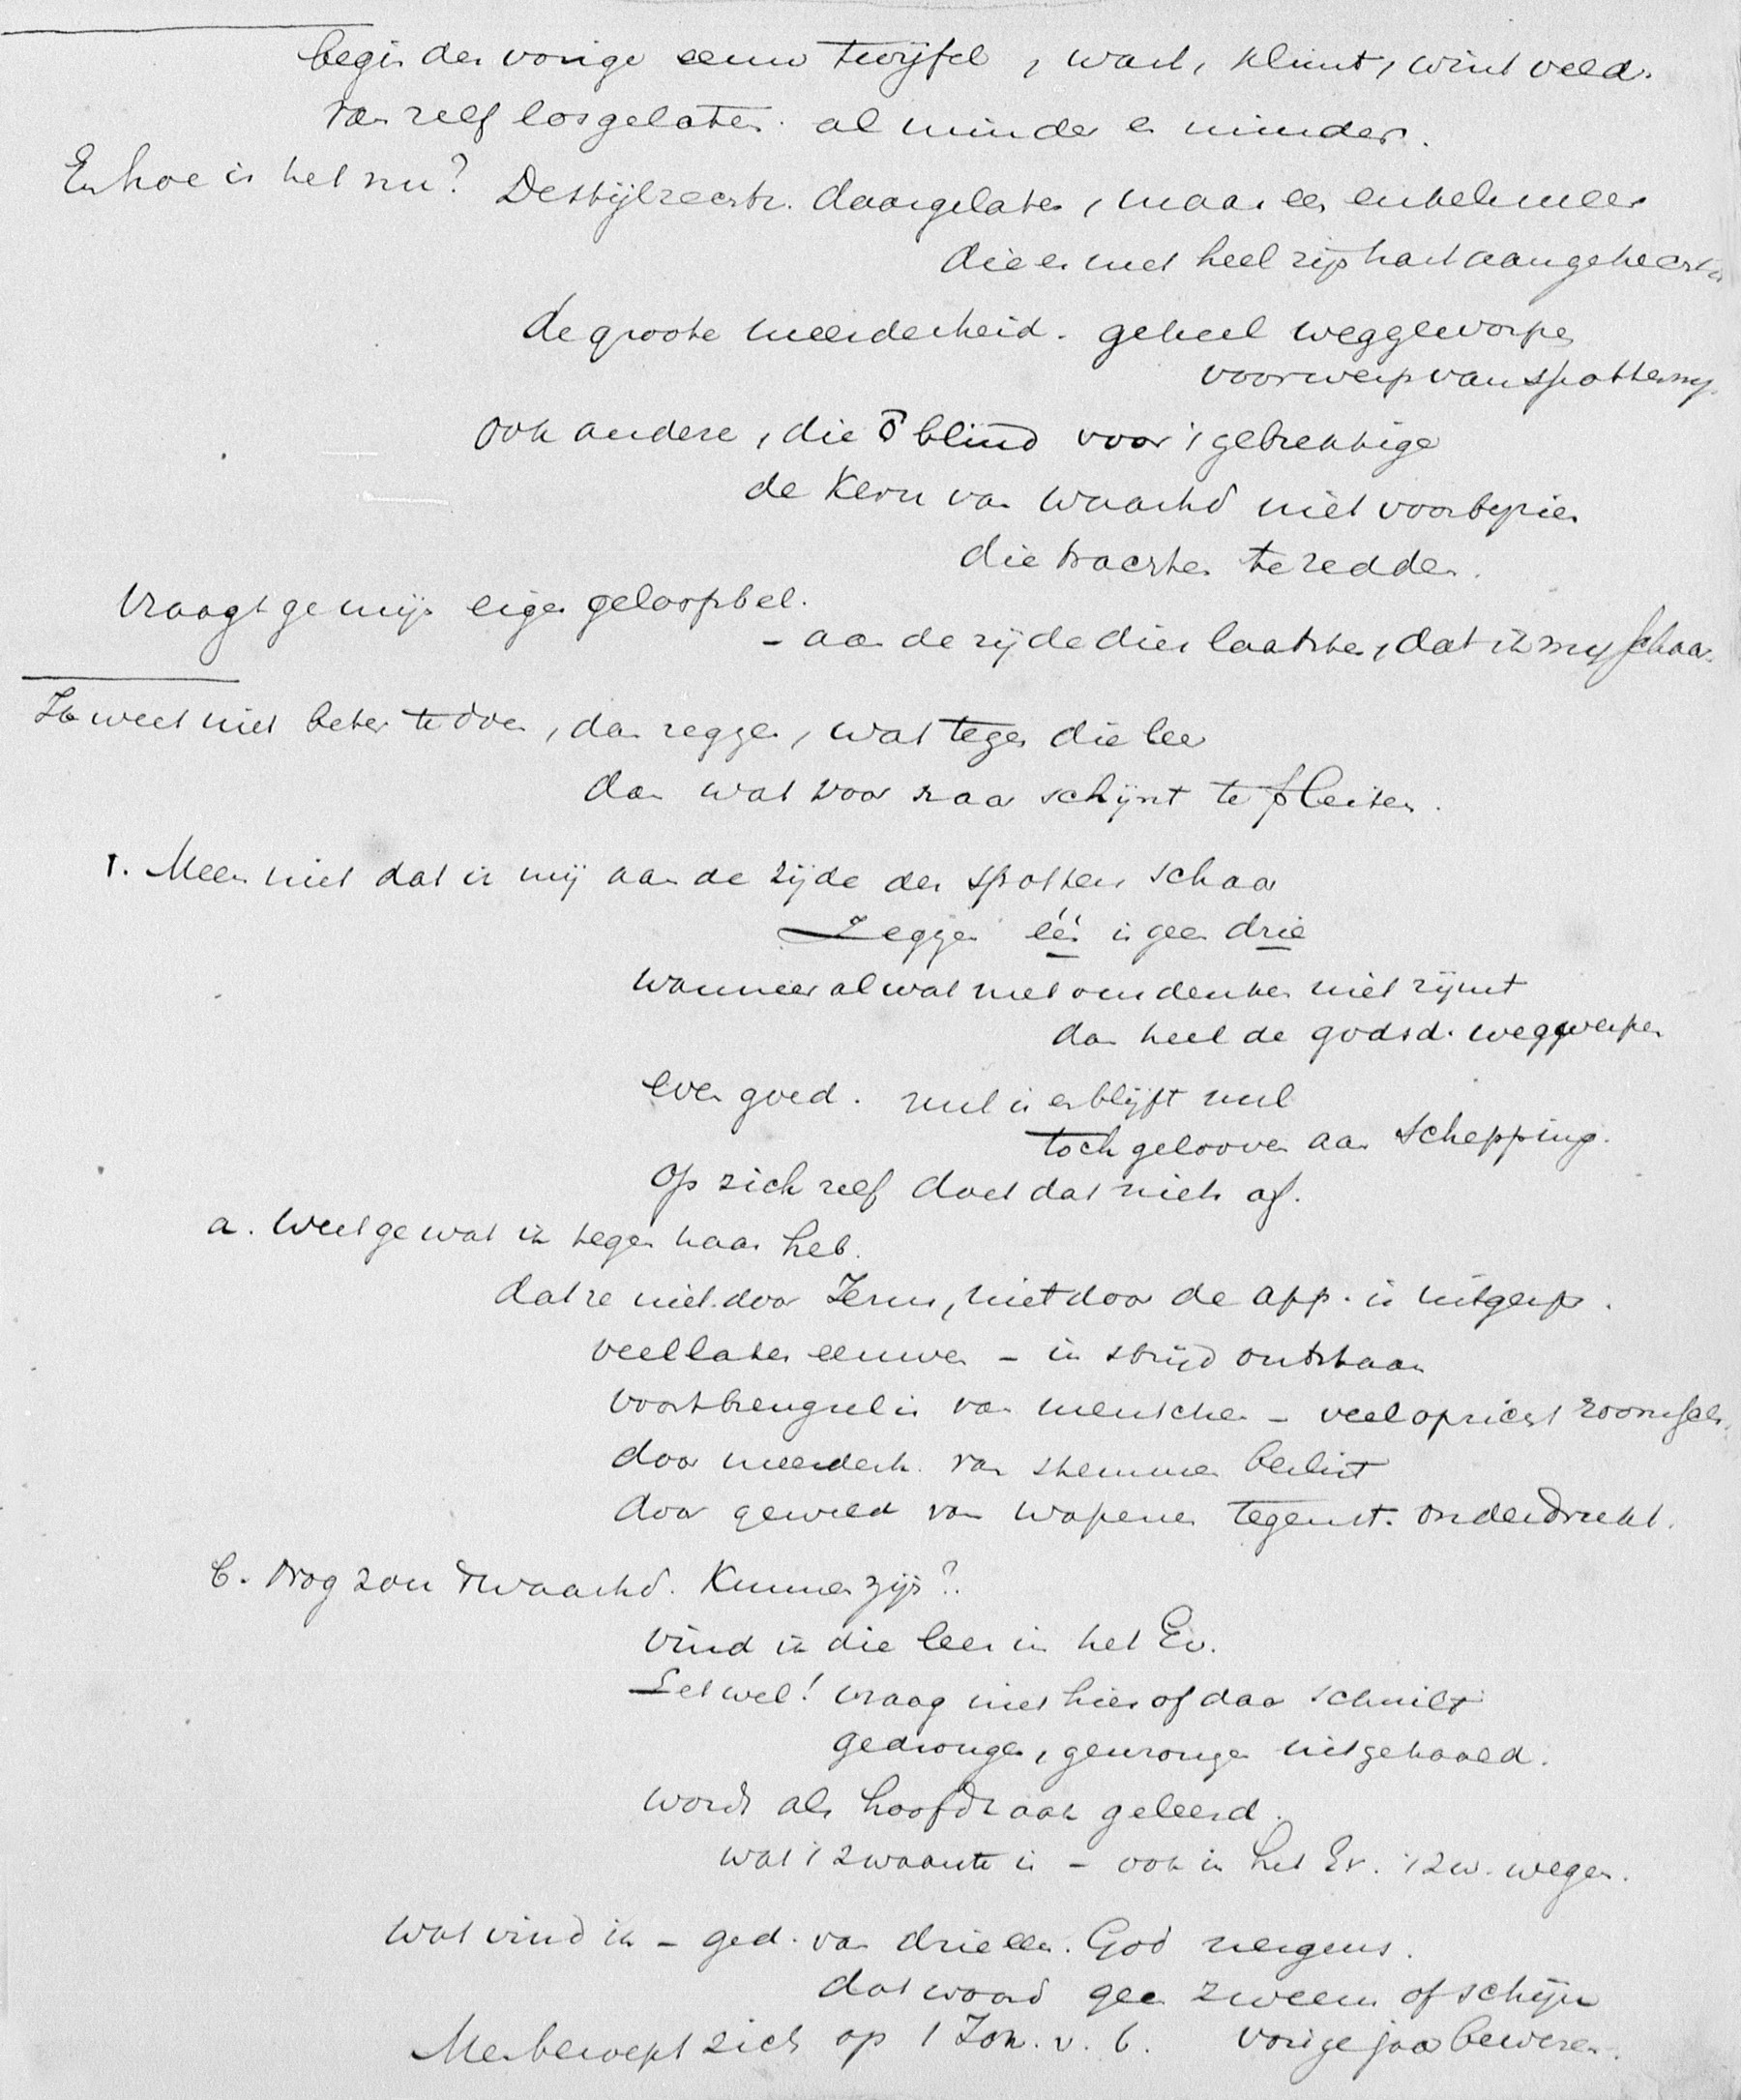 begin der vorige eeuw twijfel, wast, klimt, wint veld.
van zelf losgelaten. al minder en minder.
En hoe is het nu? De stijlrechtz. daargelaten, maar een enkele meer
die er met heel zijn hart aan gehecht is
de groote meerderheid. geheel weggeworpen
voorwerp van spotterny.
ook andere, die o blind voor 't gebrekkige
de kern van waarhd niet voorbyzien
die trachten te redden.
Vraagt ge mijn eigen geloofsbel.
- aan de zijde dier laatsten, dat ik my schaar.
Ik weet niet beter te doen, dan zeggen, wat tegen die leer
dan wat voor haar schijnt te pleiten.
1. Meen niet dat ik mij aan de zijde der spotters schaar
Zeggen één is geen drie
wanneer al wat met ons denken niet rijmt
dan heel de godsd. wegwerpen
even goed. nul is en blijft nul
toch gelooven aan schepping.
Op zich zelf doet dat niets af.
a. Weet ge wat ik tegen haar heb.
dat ze niet door Jezus, niet door de app. is uitgespr.
veel later eeuwen - in strijd ontstaan
voortbrengsel is van menschen - veel opzicht roomsch
door meerderh. van stemmen beslist
door geweld van wapenen tegenst. onderdrukt.
b. Nog zou 't waarhd. kunnen zijn?
vind ik die leer in het Ev.
Let wel! vraag niet hier of daar schuilt
gedrongen, gewrongen uitgehaald.
wordt als hoofdzaak geleerd.
wat 't zwaarste is - ook in het Ev. 't zw. wegen.
Wat vind ik - ged. van drieeen. God nergens.
dat woord geen zweem of schijn
Men beroept zich op 1 Joh. v. 6. vorige jaar bewezen.